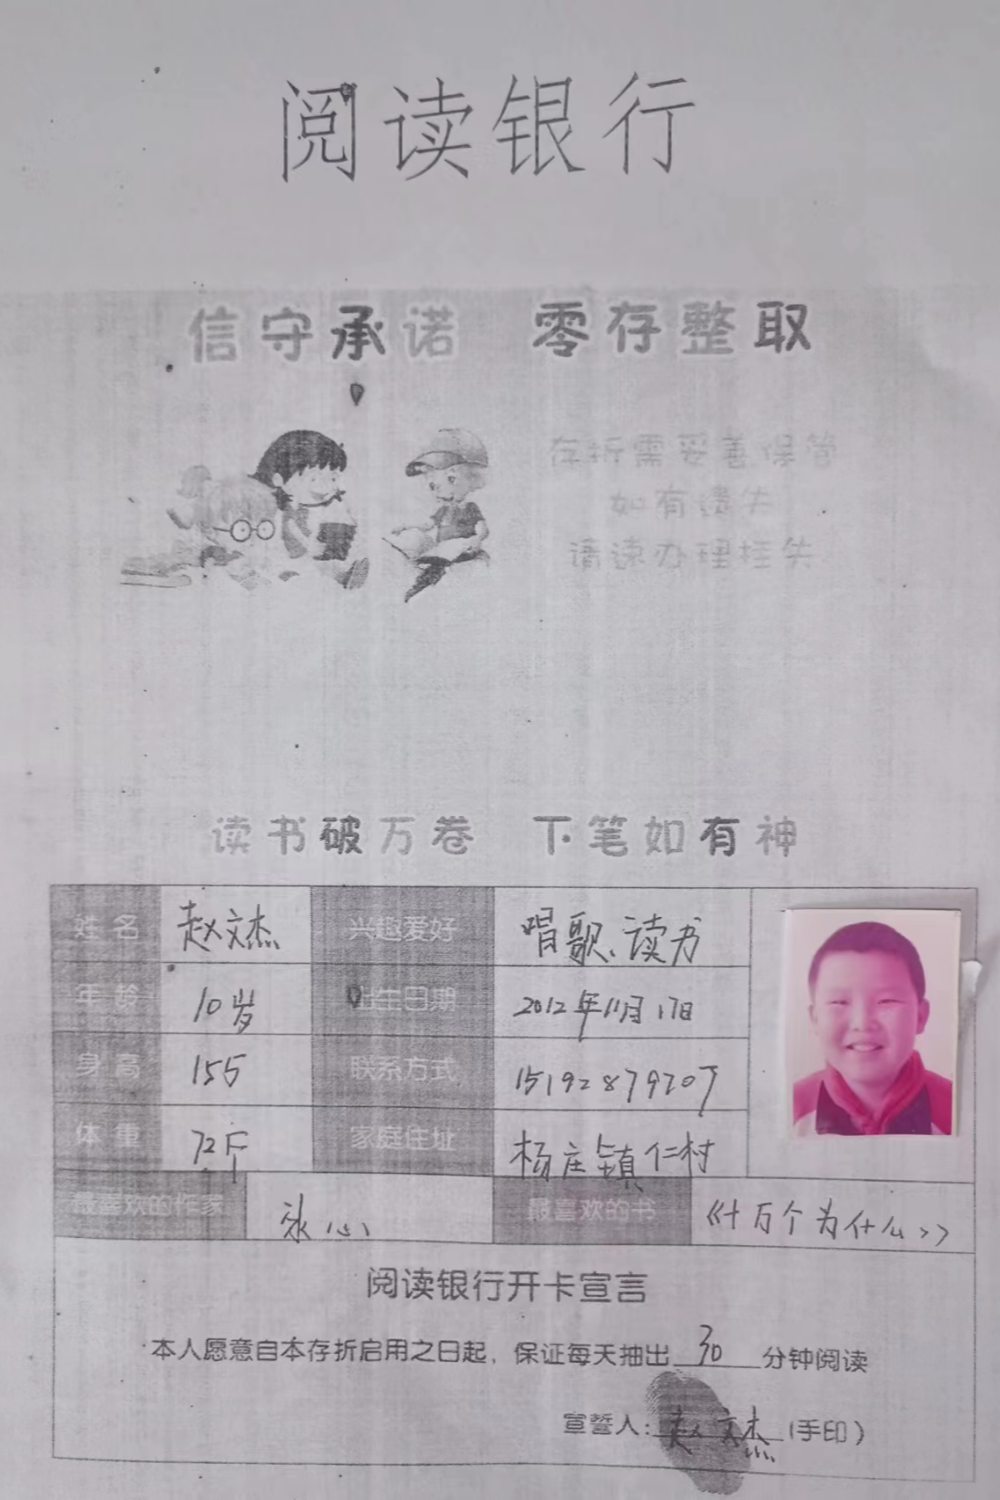 阅读银行
信守承诺 零存整取
存折需妥善保管
如有遗失
请速办理挂失
读书破万卷 下笔如有神
姓名 赵文杰 兴趣爱好 唱歌、读书
年龄 10岁 出生日期 2012年11月17日
身高 155 联系方式
体重 72斤 家庭住址 杨庄镇仁村
最喜欢的作家 冰心 最喜欢的书 《十万个为什么》
阅读银行开卡宣言
本人愿意自本存折启用之日起，保证每天抽出30分钟阅读
宣誓人：赵文杰（手印）